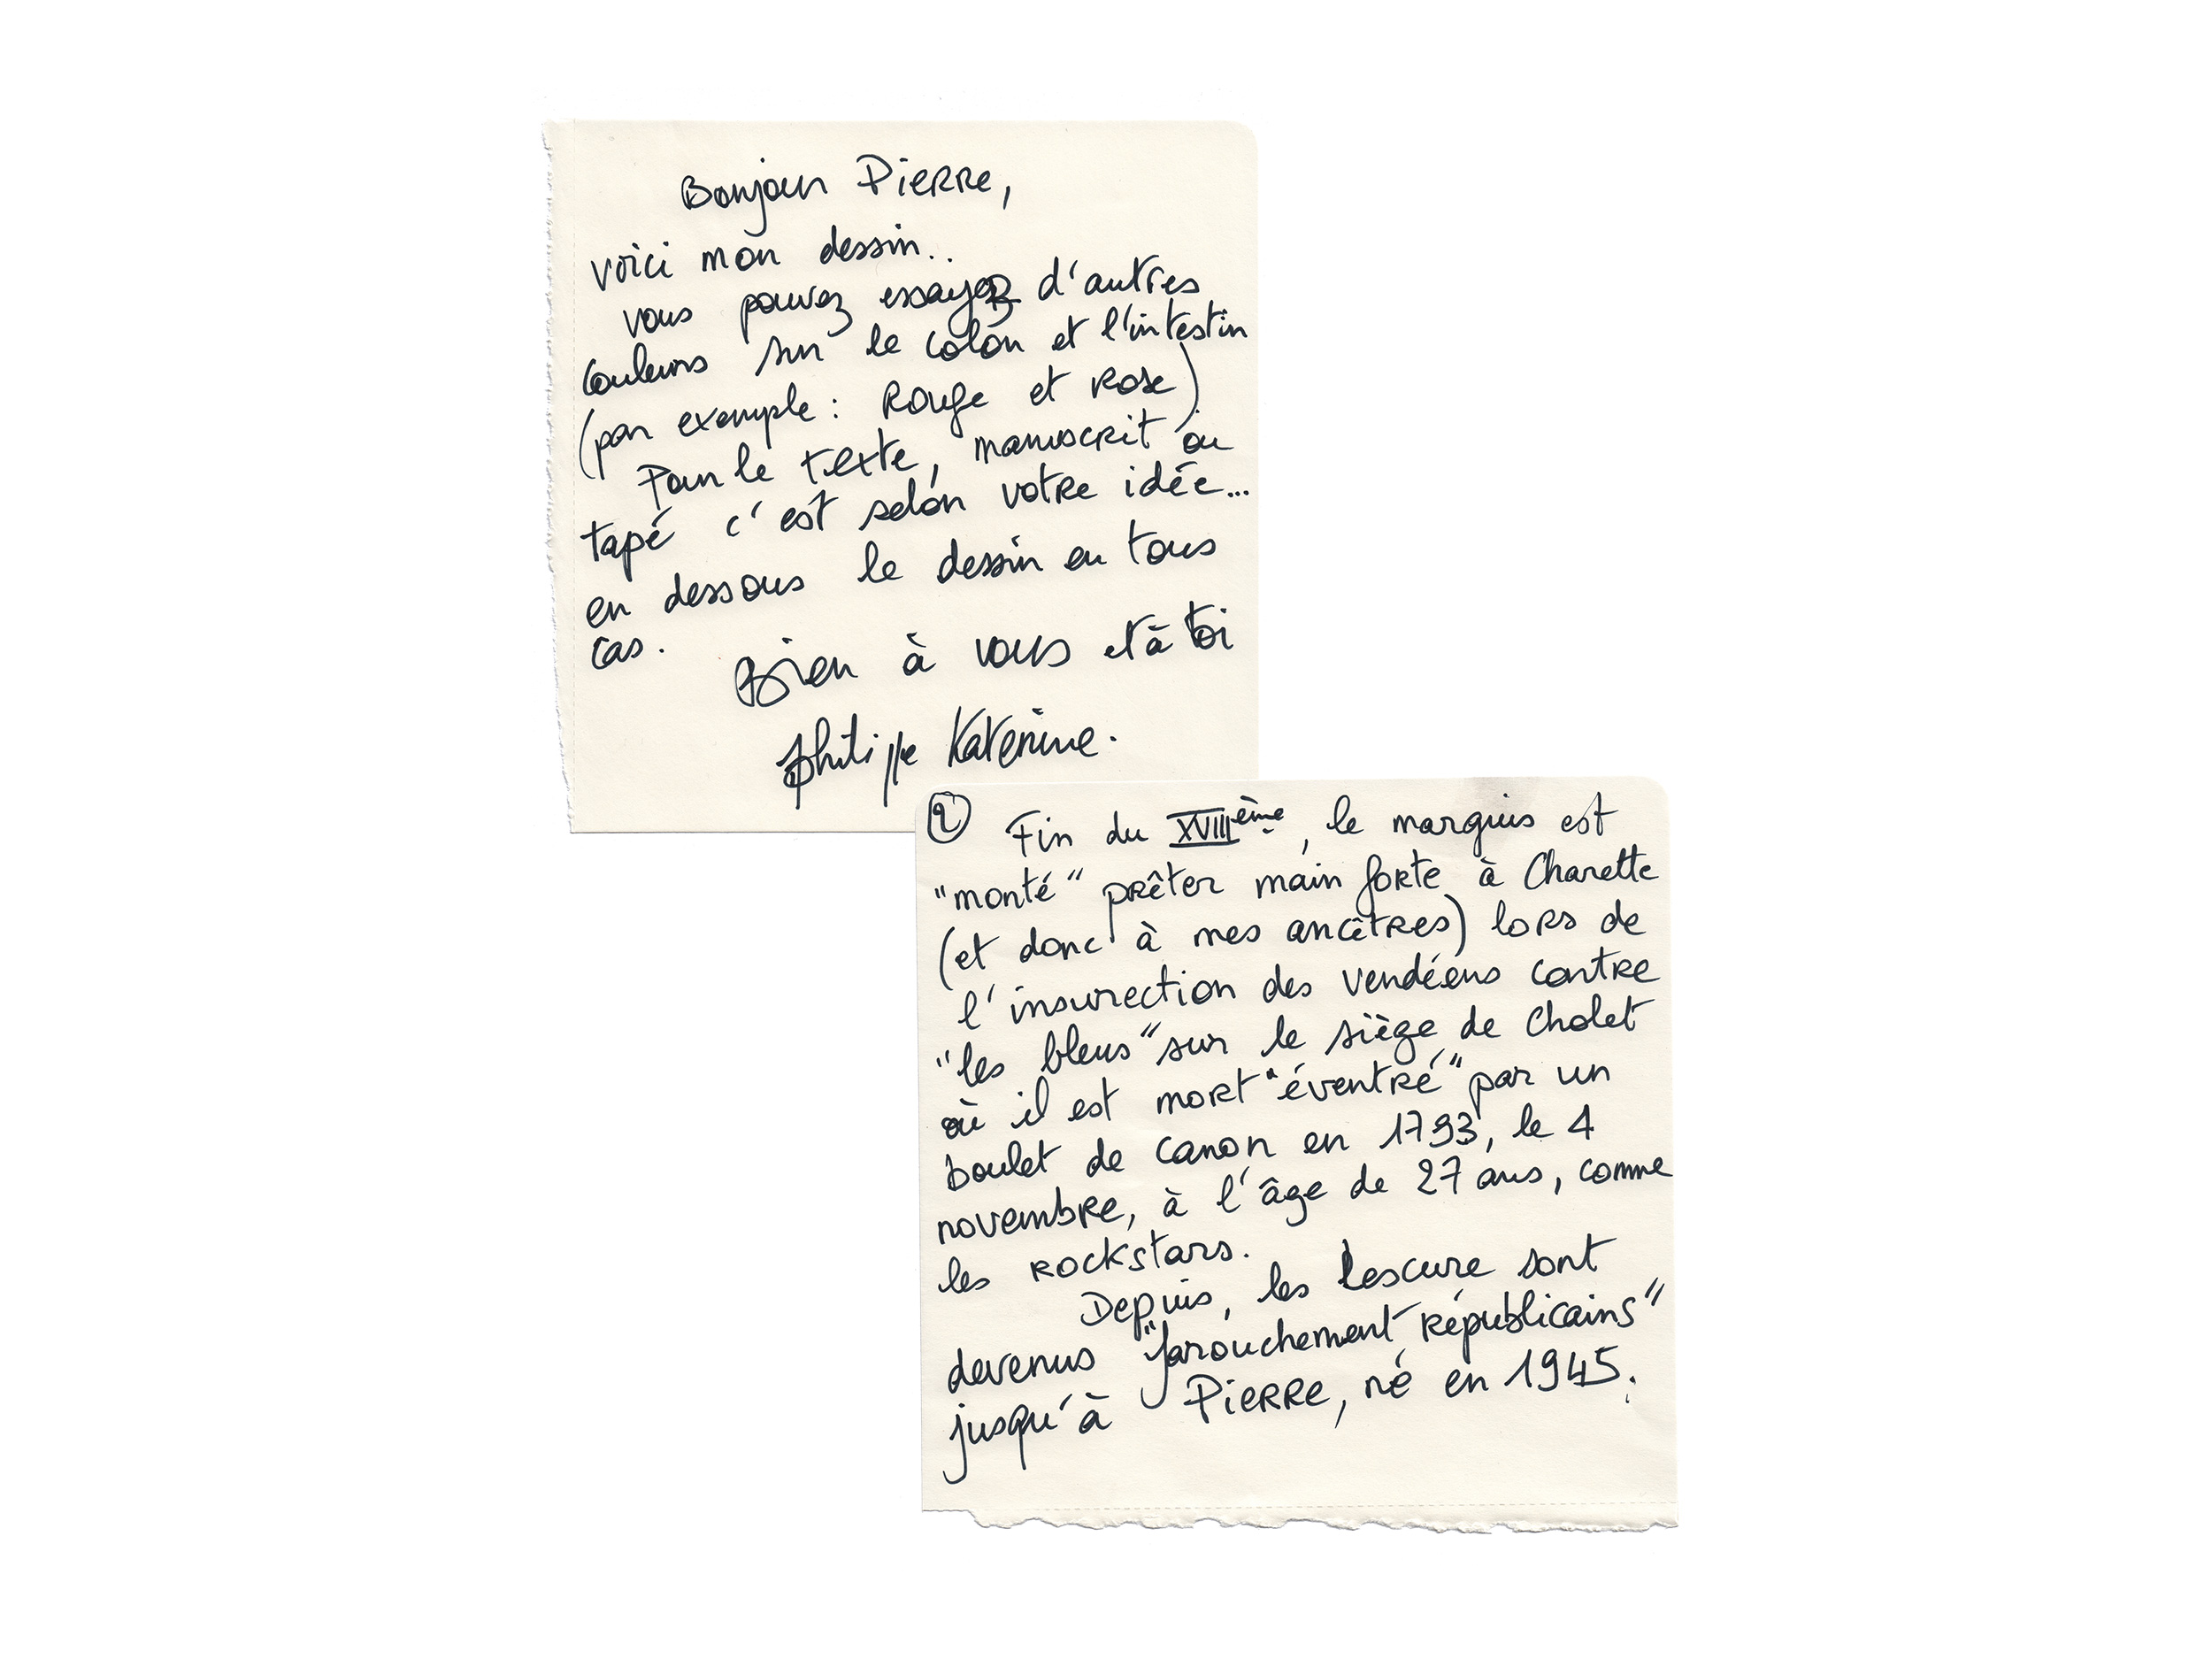 Bonjour Pierre,
voici mon dessin..
vous pouvez essayer d'autres
couleurs sur le colon et l'intestin
(par exemple : Rouge et Rose)
Pour le texte, manuscrit ou
tapé c'est selon votre idée...
en dessous le dessin en tous
cas.
Bien à vous et à toi
Philippe Katerine.
2 Fin du XVIIIème, le marquis est
"monté" prêter main forte à Charette
(et donc à mes ancêtres) lors de
l'insurection des vendéens contre
"les bleus" sur le siège de Cholet
où il est mort "éventré" par un
boulet de canon en 1793, le 4
novembre, à l'âge de 27 ans, comme
les rockstars.
Depuis, les Lescure sont
devenus "farouchement républicains"
jusqu'à Pierre, né en 1945.